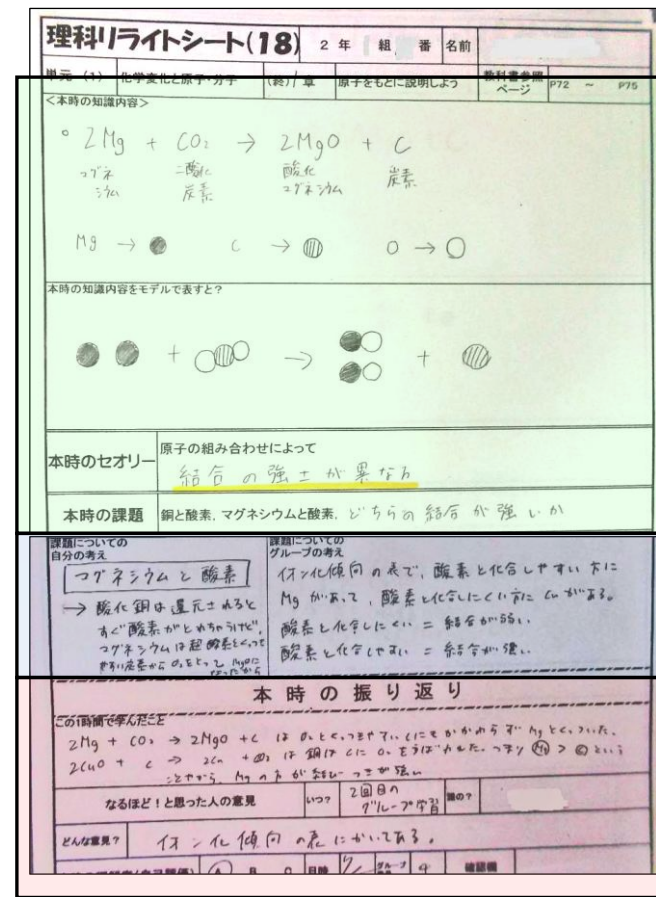 理科リライトシート(18) 2 年 組 番 名前
単元 (1) 化学変化と原子・分子 (終)/ 章 原子をもとに説明しよう 教科書参照ページ P72 ~ P75
<本時の知識内容>
2Mg + CO2 → 2MgO + C
マグネシウム 二酸化炭素 酸化マグネシウム 炭素
Mg → C → O →
本時の知識内容をモデルで表すと?
+ → +
本時のセオリー 原子の組み合わせによって
結合の強さが異なる
本時の課題 銅と酸素、マグネシウムと酸素、どちらの結合が強いか
課題についての
自分の考え
マグネシウムと酸素
→ 酸化銅は還元されると
すぐ酸素がとれちゃうけど、
マグネシウムは超酸素とくっつき
やすい炭素からO2をとって MgOに
なったから
課題についての
グループの考え
イオン化傾向の表で、酸素と化合しやすい方に
Mgがあって、酸素と化合しにくい方にCuがある。
酸素と化合しにくい = 結合が弱い
酸素と化合しやすい = 結合が強い。
本時の振り返り
この1時間で学んだこと
2Mg + CO2 → 2MgO + C は O2とくっつきやすいCにもかかわらず Mgとくっついた。
2CuO + C → 2Cu + CO2 は 銅はCに O2をうばわれた。つまり Mg > C という
ことだから、Mgの方が結びつきが強い
なるほど!と思った人の意見 いつ? 2回目のグループ学習 誰の?
どんな意見? イオン化傾向の表にかいてある。
A B C 日時 グループ 4 確認欄